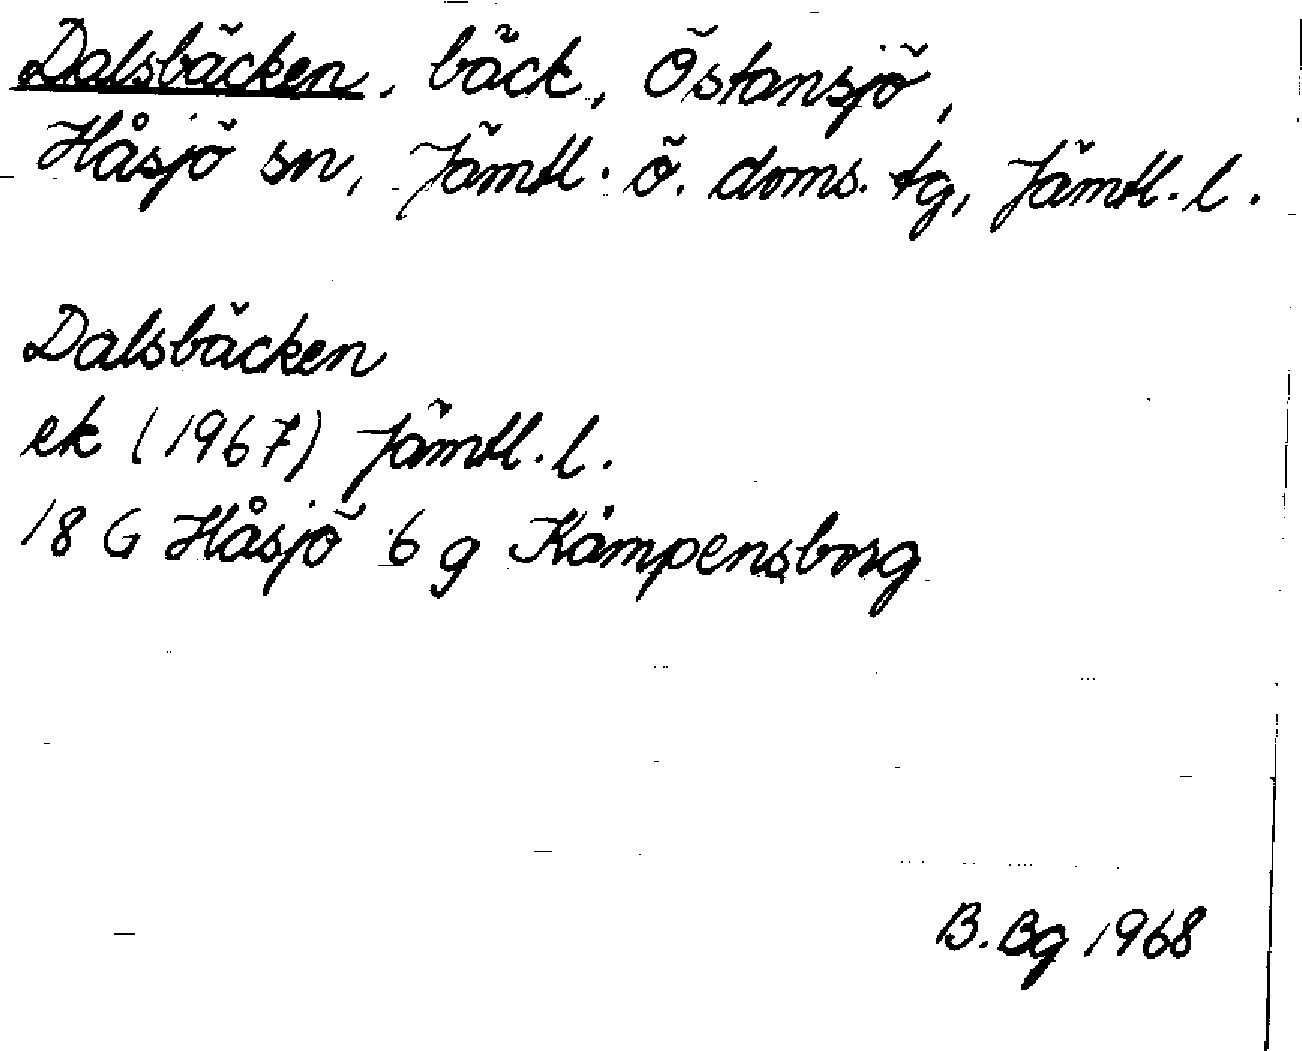 Dalsbäcken, bäck, Östansjö,
Håsjö sn, Jämtl. ö. doms. tg, Jämtl. l.
Dalsbäcken
ek (1967) Jämtl. l.
18 G Håsjö 6 g Kåmpensborg
B. Bg 1968